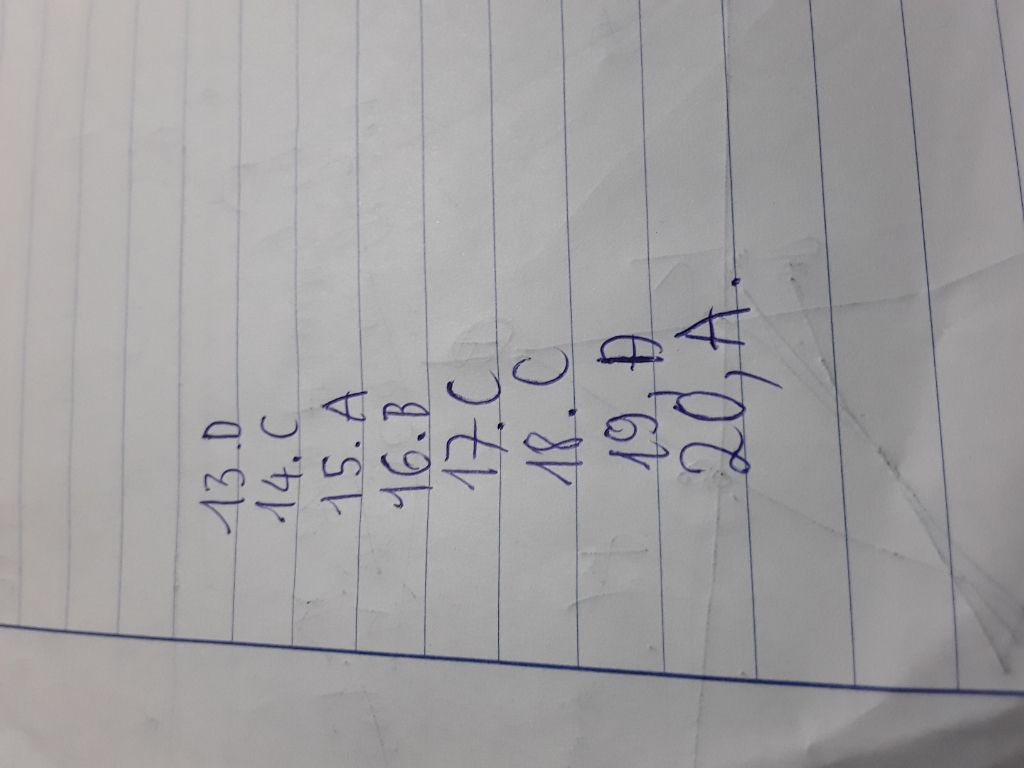 13.D
14.C
15.A
16.B
17.C
18.C
19, D
20, A.